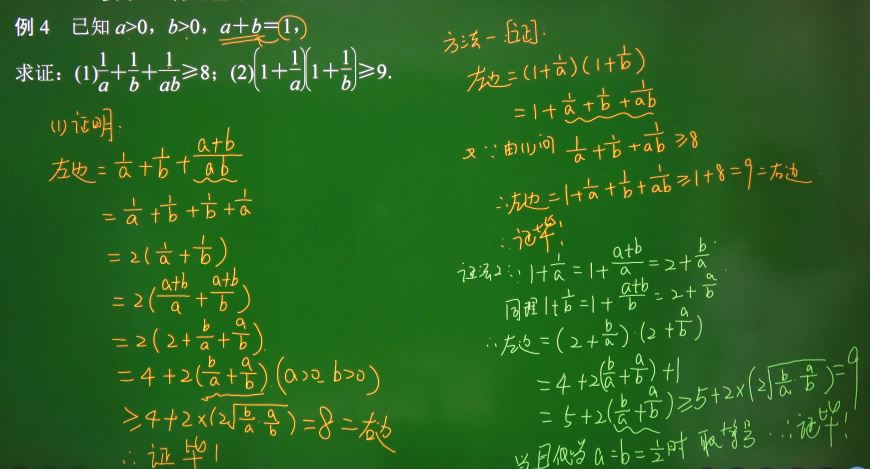 例4 已知 a>0, b>0, a+b=1,
求证: (1) 1/a+1/b+1/ab≥8; (2) (1+1/a)(1+1/b)≥9.
(1)证明:
左边=1/a+1/b+(a+b)/ab
=1/a+1/b+1/b+1/a
=2(1/a+1/b)
=2((a+b)/a+(a+b)/b)
=2(2+b/a+a/b)
=4+2(b/a+a/b) (a>0 b>0)
≥4+2×(2√(b/a·a/b))=8=右边
∴证毕!
方法一 证:
左边=(1+1/a)(1+1/b)
=1+1/a+1/b+1/ab
又∵由(1)问 1/a+1/b+1/ab≥8
∴左边=1+1/a+1/b+1/ab≥1+8=9=右边
∴证毕!
证法2: ∵1+1/a=1+(a+b)/a=2+b/a
同理1+1/b=1+(a+b)/b=2+a/b
∴左边=(2+b/a)·(2+a/b)
=4+2(b/a+a/b)+1
=5+2(b/a+a/b)≥5+2×(2√(b/a·a/b))=9
当且仅当a=b=1/2时 取等号 ∴证毕!